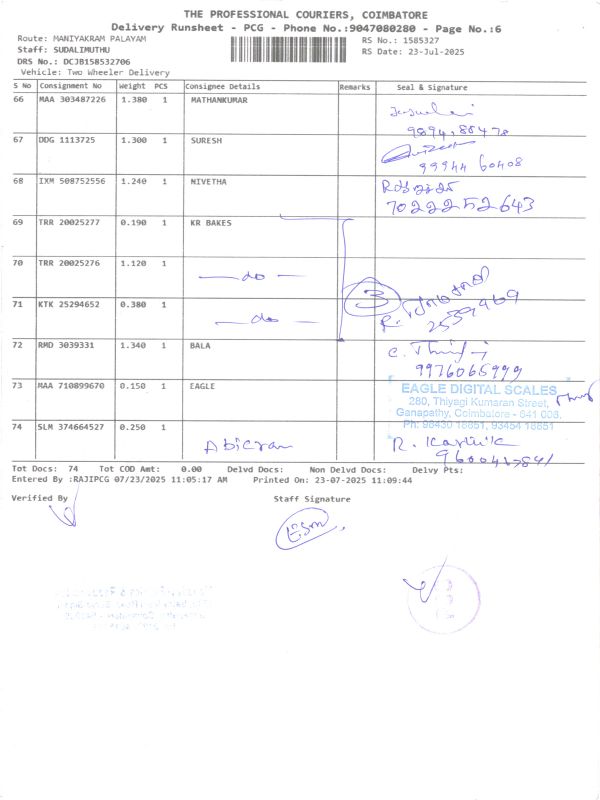 THE PROFESSIONAL COURIERS, COIMBATORE
Delivery Runsheet - PCG - Phone No.:9047080280 - Page No.:6
Route: MANIYAKRAM PALAYAM RS No.: 1585327
Staff: SUDALIMUTHU RS Date: 23-Jul-2025
DRS No.: DCJB158532706
Vehicle: Two Wheeler Delivery
S No Consignment No Weight PCS Consignee Details Remarks Seal & Signature
66 MAA 303487226 1.380 1 MATHANKUMAR
67 DDG 1113725 1.300 1 SURESH
99944 60408
68 IXM 508752556 1.240 1 NIVETHA
7022252643
69 TRR 20025277 0.190 1 KR BAKES
70 TRR 20025276 1.120 1
— do —
3
71 KTK 25294652 0.380 1
— do —
72 RMD 3039331 1.340 1 BALA
9976065999
73 MAA 710899670 0.150 1 EAGLE
EAGLE DIGITAL SCALES
280, Thiyagi Kumaran Street,
Ganapathy, Coimbatore - 641 006,
Ph: 98430 18851, 93454 18851
74 SLM 374664527 0.250 1
Abicran R. Karthik
Tot Docs: 74 Tot COD Amt: 0.00 Delvd Docs: Non Delvd Docs: Delvy Pts:
Entered By :RAJIPCG 07/23/2025 11:05:17 AM Printed On: 23-07-2025 11:09:44
Verified By Staff Signature